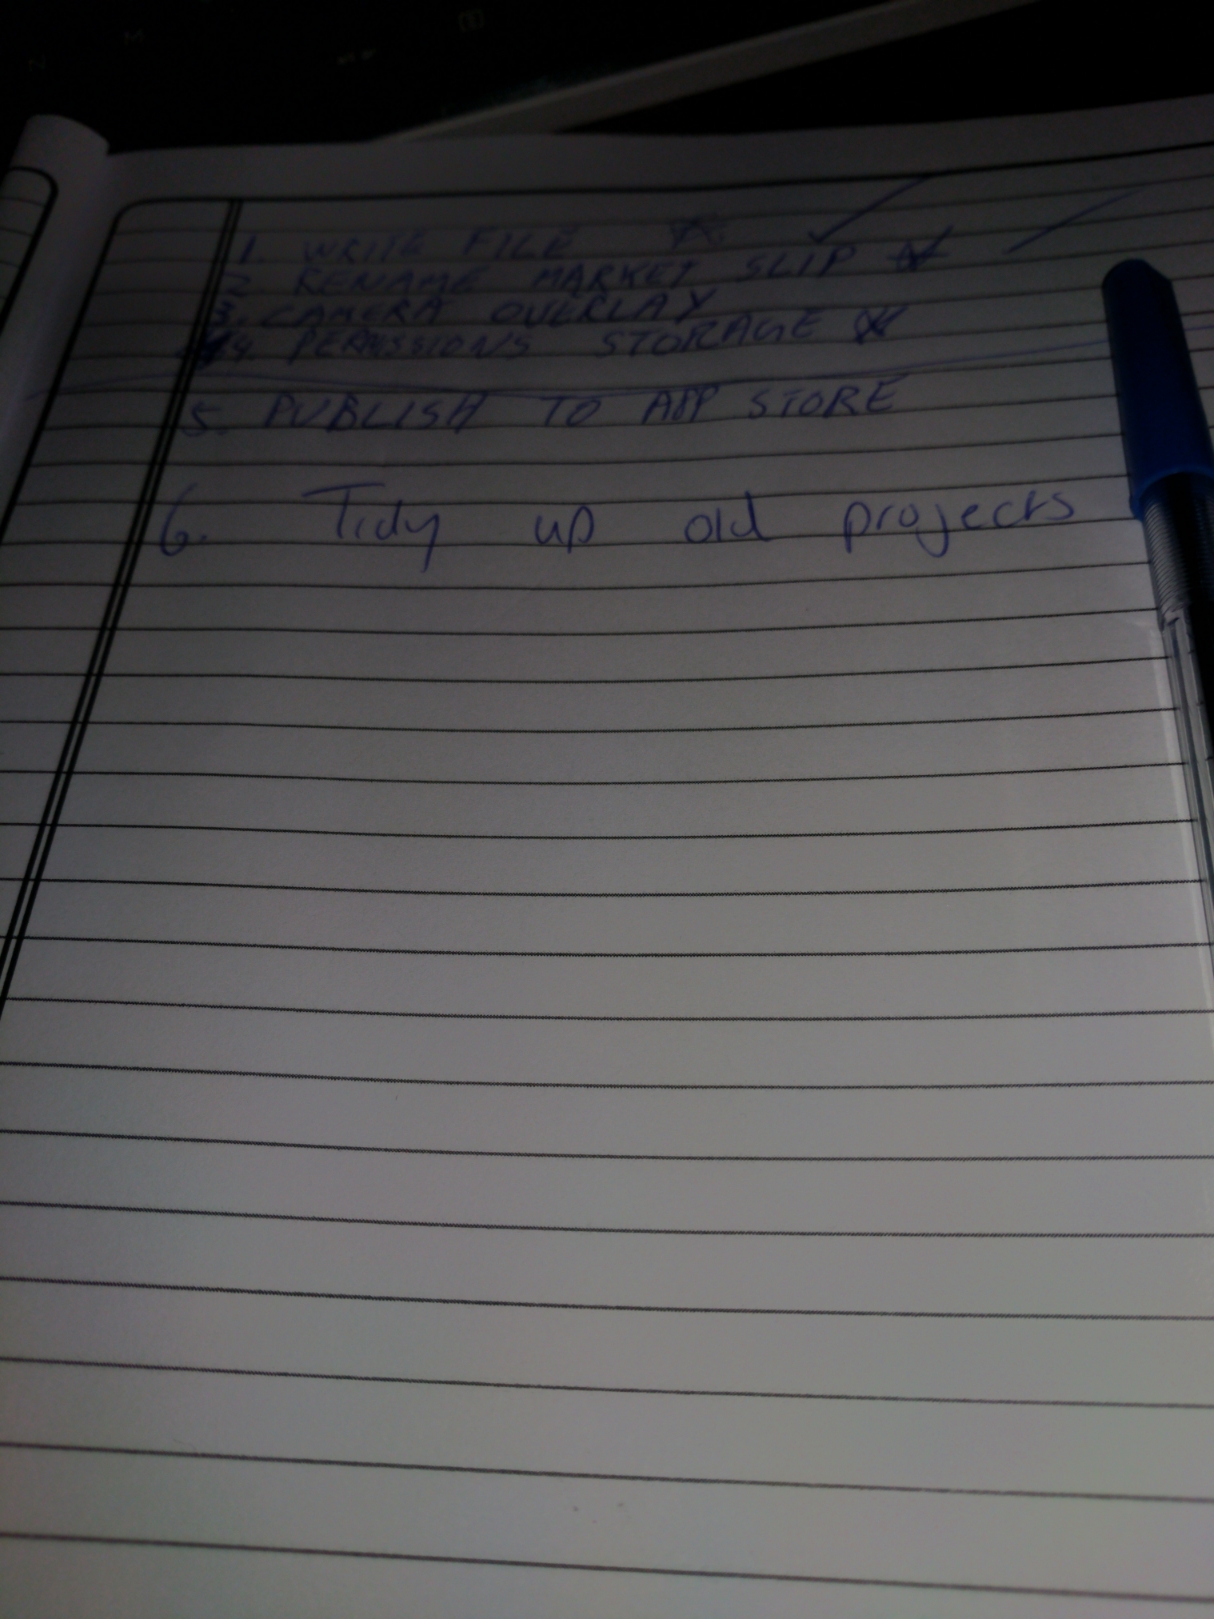 1. WRITE FILE
2. RENAME MARKET SLIP
3. CAMERA OVERLAY
4. PERMISSIONS STORAGE
5. PUBLISH TO APP STORE
6. Tidy up old projects